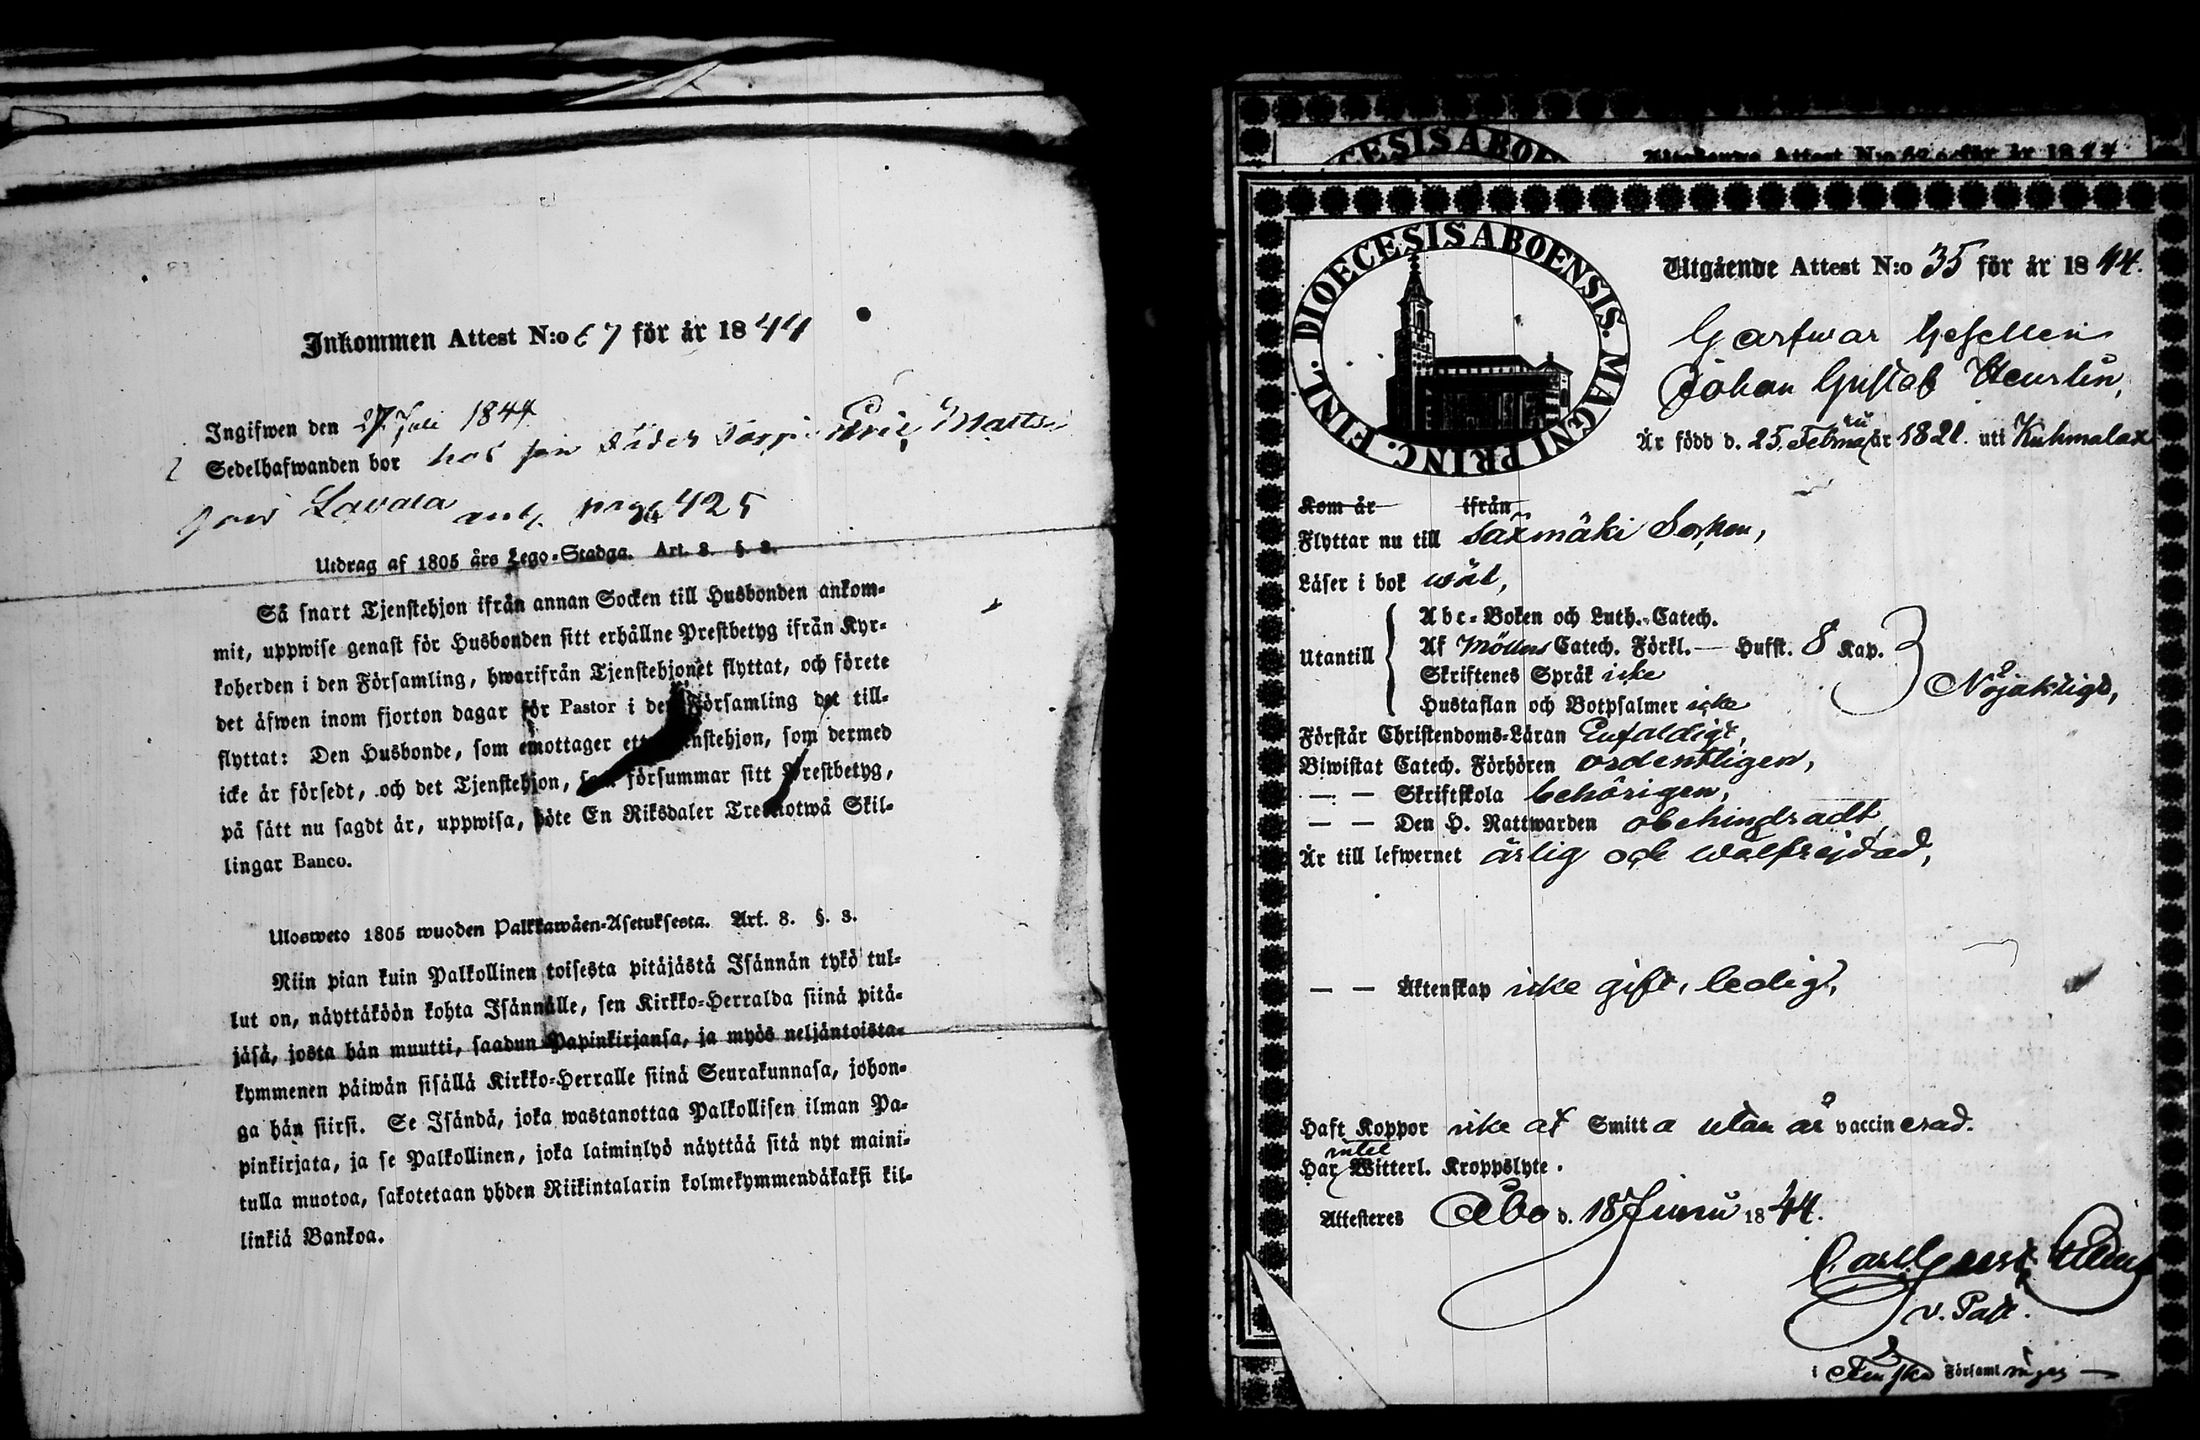 Inkommen Attest N:o 67 för år 1844
Ingifwen den 27 Juli 1844
Sedelhafwanden bor hos sin Eric Matts
Lavala pag 425
Utdrag af 1805 års Lego-Stadga. Art. 8. §. 3.
Så snart Tjenstehjon ifrån annan Socken till Husbonden ankom-
mit, uppwise genast för Husbonden sitt erhållne Prestbetyg ifrån Kyr-
koherden i den Församling, hwarifrån Tjenstehjonet flyttat, och förete
det äfwen inom fjorton dagar för Pastor i den Församling det till-
flyttat: Den Husbonde, som emottager ett Tjenstehjon, som dermed
icke är försedt, och det Tjenstehjon, som försummar sitt Prestbetyg,
på sätt nu sagdt är, uppwisa, böte En Riksdaler Trettiotwå Skil-
lingar Banco.
Ulosweto 1805 wuoden Palkkawäen-Asetuksesta. Art. 8. §. 3.
Niin pian kuin Palkollinen toisesta pitäjästä Isännän tykö tul-
lut on, näyttäköön kohta Isännälle, sen Kirkko-Herralda siinä pitä-
jäsä, josta hän muutti, saadun Papinkirjansa, ja myös neljäntoista-
kymmenen päiwän sisällä Kirkko-Herralle siinä Seurakunnasa, johon-
ga hän siirsi. Se Isändä, joka wastanottaa Palkollisen ilman Pa-
pinkirjata, ja se Palkollinen, joka laiminlyö näyttää sitä nyt maini-
tulla muotoa, sakotetaan yhden Riikintalarin kolmekymmendäkaksi kil-
linkiä Bankoa.
CESIS ABOEN
Utgående Attest N:o för år 1844
DIOECESIS ABOENSIS. MAGNI PRINC. FINL.
Utgående Attest N:o 35 för år 1844.
Garfwar Gesellen
Johan Gustaf
Är född d. 25. Februarii år 1821. uti Kuhmalax
Kom år ifrån
Flyttar nu till Säxmäki Socken,
Läser i bok wäl,
Utantill
Abc-Boken och Luth. Catech.
Af Möllers Catech. Förkl. — Hufst. 8 Kap.
Skriftenes Språk icke
Hustaflan och Botpsalmer icke
Nöjaktigt,
Förstår Christendoms-Läran Enfaldigt,
Biwistat Catech. Förhören ordentligen,
— — Skriftskola behörigen,
— — Den H. Nattwarden obehindradt
Är till lefwernet ärlig och wälfrejdad,
— — Äktenskap icke gift, ledig,
Haft Koppor icke af Smitta utan är vaccinerad.
intet
Har Witterl. Kroppslyte.
Attesteres Åbo d. 18 Junii 1844.
Carl Gust.
v. Past.
i Finska Församlingen